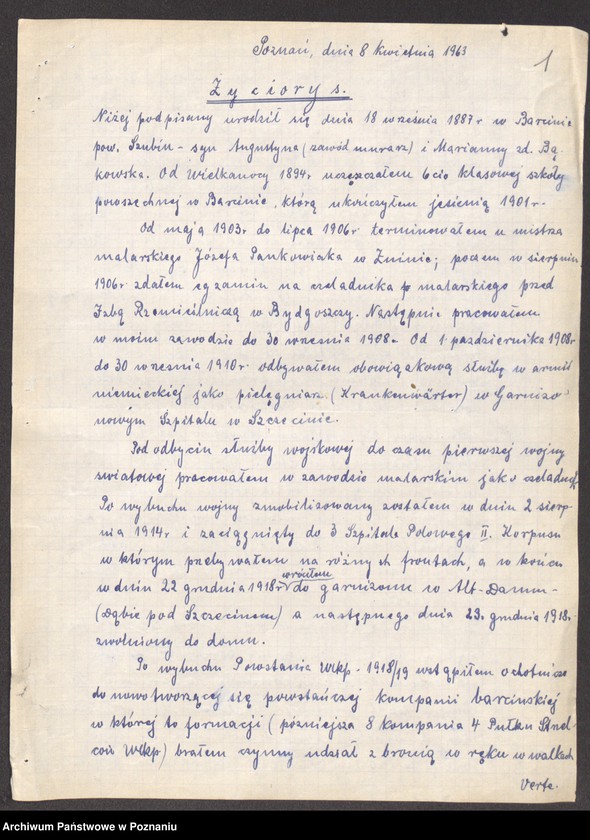 Poznań, dnia 8 Kwietnia 1963
1
Życiorys.
Niżej podpisany urodził się dnia 18 września 1887 r w Barcinie
pow. Szubin – syn Augustyna (zawód murarz) i Marianny zd. Bą-
kowska. Od Wielkanocy 1894r uczęszczałem 6cio klasowej szkoły
powszechnej w Barcinie, którą ukończyłem jesienią 1901 r.
Od maja 1903r do lipca 1906r terminowałem u mistrza
malarskiego Józefa Pankowiaka w Żninie; poczem w sierpniu
1906r zdałem egzamin na czeladnika malarskiego przed
Izbą Rzemieślniczą w Bydgoszczy. Następnie pracowałem
w moim zawodzie do 30 września 1908. Od 1 października 1908r
do 30 września 1910r odbywałem obowiązkową służbę w armii
niemieckiej jako pielęgniarz (Krankenwärter) w Garnizo-
nowym Szpitalu w Szczecinie.
Pod odbyciu służby wojskowej do czasu pierwszej wojny
światowej pracowałem w zawodzie malarskim jako czeladnik.
Po wybuchu wojny zmobilizowany zostałem w dniu 2 sierp-
nia 1914r i zaciągnięty do 3 Szpitala Polowego II. Korpusu
w którym przebywałem na różnych frontach, a w końcu
w dniu 22 grudnia 1918r wróciłem do garnizonu w Alt-Damm-
(Dąbie pod Szczecinem) a następnego dnia 23. grudnia 1918r.
zwolniony do domu.
Po wybuchu Powstania Wlkp – 1918/19 wstąpiłem ochotniczo
do nowotworzącej się powstańczej kompanii barcińskiej
w której to formacji (późniejsza 8 kompania 4 Pułku Strzel-
ców Wlkp) brałem czynny udział z bronią w ręku w walkach
Verte.
Archiwum Państwowe w Poznaniu